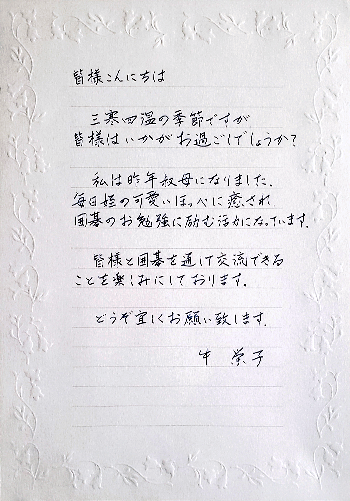 皆様こんにちは
三寒四温の季節ですが
皆様はいかがお過ごしでしょうか?
私は昨年叔母になりました.
毎日姪の可愛いほっぺに癒され
囲碁のお勉強に励む活力になっています.
皆様と囲碁を通じて交流できる
ことを楽しみにしております.
どうぞ宜しくお願い致します.
牛 栄子